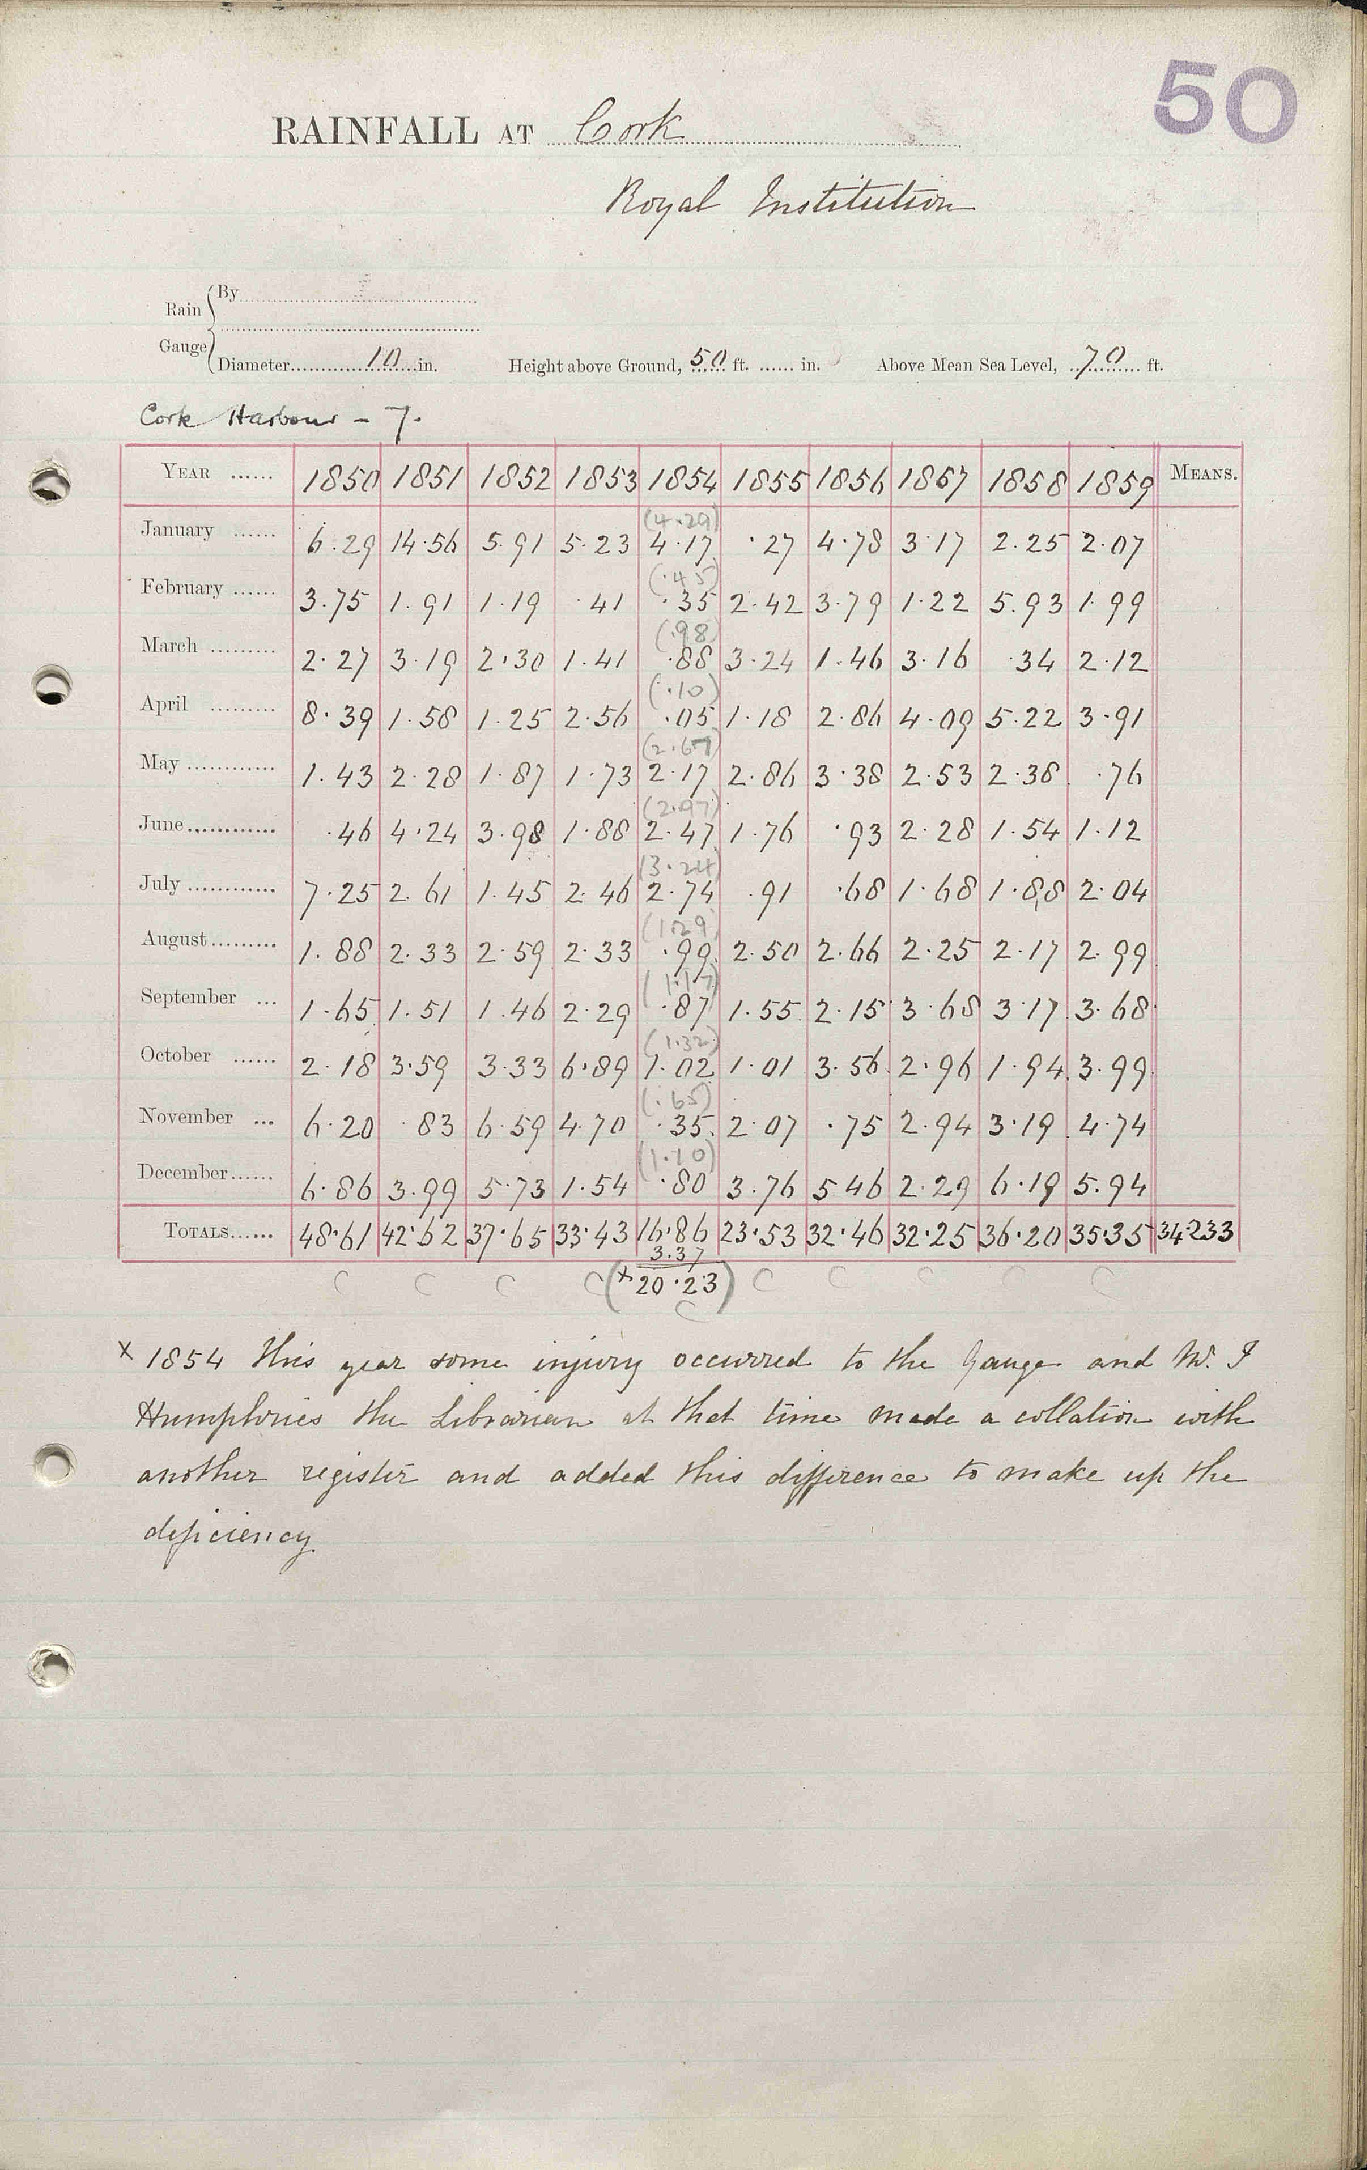 50
RAINFALL AT Cork
Royal Institution
Rain Gauge { By
Diameter 10 in. Height above Ground, 50 ft. ...... in. Above Mean Sea Level, 70 ft.
Cork Harbour - 7.
YEAR ...... 1850 1851 1852 1853 1854 1855 1856 1857 1858 1859 MEANS.
(4.29)
January ...... 6.29 14.56 5.91 5.23 4.17 .27 4.78 3.17 2.25 2.07
(.45)
February ...... 3.75 1.91 1.19 .41 .35 2.42 3.79 1.22 5.93 1.99
(.98)
March ......... 2.27 3.19 2.30 1.41 .88 3.24 1.46 3.16 .34 2.12
(.10)
April ......... 8.39 1.58 1.25 2.56 .05 1.18 2.86 4.09 5.22 3.91
(2.67)
May ............ 1.43 2.28 1.87 1.73 2.17 2.86 3.38 2.53 2.38 .76
(2.97)
June ............ .46 4.24 3.98 1.88 2.47 1.76 .93 2.28 1.54 1.12
(3.24)
July ............ 7.25 2.61 1.45 2.46 2.74 .91 .68 1.68 1.88 2.04
(1.29)
August ......... 1.88 2.33 2.59 2.33 .99 2.50 2.66 2.25 2.17 2.99
(1.17)
September ... 1.65 1.51 1.46 2.29 .87 1.55 2.15 3.68 3.17 3.68
(1.32)
October ...... 2.18 3.59 3.33 6.89 1.02 1.01 3.56 2.96 1.94 3.99
(.65)
November ... 6.20 .83 6.59 4.70 .35 2.07 .75 2.94 3.19 4.74
(1.10)
December ...... 6.86 3.99 5.73 1.54 .80 3.76 5.46 2.29 6.19 5.94
TOTALS ...... 48.61 42.62 37.65 33.43 16.86 23.53 32.46 32.25 36.20 35.35 34.233
3.37
C C C C (x 20.23) C C C C C
C
x 1854 this year some injury occurred to the Gauge and Mr. J
Humphries the Librarian at that time made a collation with
another register and added this difference to make up the
deficiency